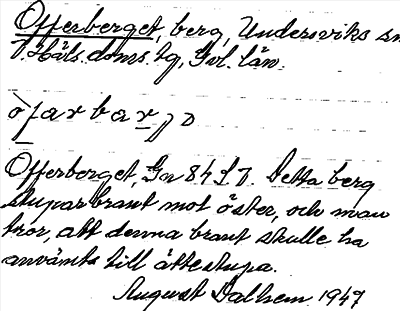 Offerberget, berg, Undersviks sn
V. Häls. doms. tg, Gvl. län.
Offerberget, Gn 84 S 7. Detta berg
stupar brant mot öster, och man
tror, att denna brant skulle ha
använts till ättestupa.
August Dalhem 1947